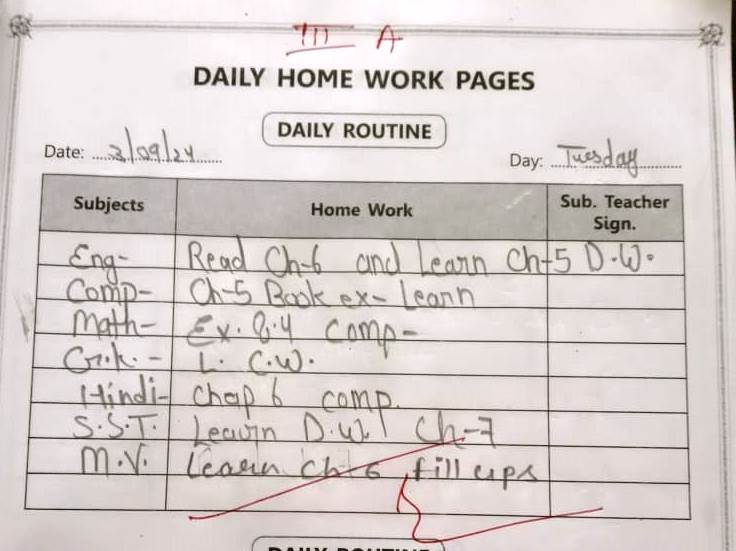 III A
DAILY HOME WORK PAGES
DAILY ROUTINE
Date: 3/09/24 Day: Tuesday
Subjects Home Work Sub. Teacher Sign.
Eng- Read Ch-6 and Learn Ch-5 D.W.
Comp- Ch-5 Book ex- Learn
Math- Ex. 8.4 Comp-
G.k. - L. C.W.
Hindi- Chap 6 comp.
S.S.T. Learn D.W. Ch-7
M.V. Learn Ch-6 fill ups
DAILY ROUTINE